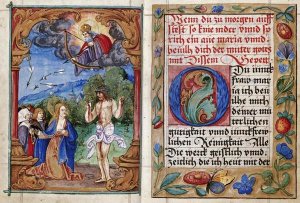 Wenn du zu morgen auff
stest so knie nider vnnd sp
rich ein aue maria vnnd
beuilh dich der mutter gotts
mit Dissem Gepett
O Du iunck
fraw mar
ia ich beu
ilhe mich
deiner mit
terlichen
güttigkait vnnd iunckfrew
lichen Reinigkait Alle
Die werck geistlich vnnd
zeitlich die ich heut mit der